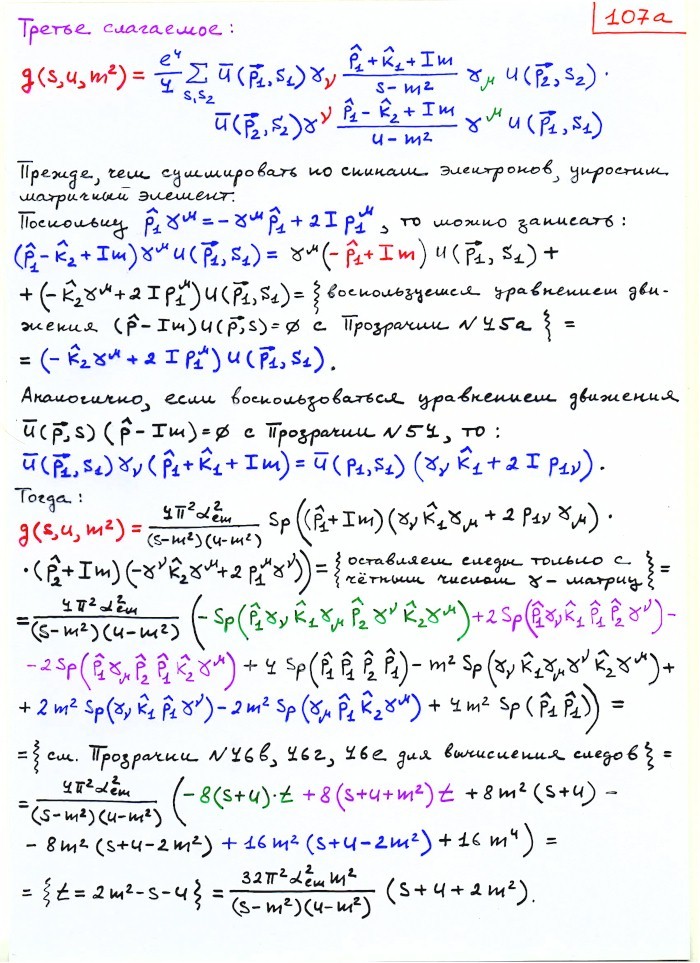 107а
Третье слагаемое:
g(s,u,m²) = e⁴/4 Σ_{s₁s₂} ū(p⃗₁,s₁)γ_ν (p̂₁+k̂₁+Im)/(s-m²) γ_μ u(p⃗₂,s₂)·
ū(p⃗₂,s₂)γ^ν (p̂₁-k̂₂+Im)/(u-m²) γ^μ u(p⃗₁,s₁)
Прежде, чем суммировать по спинам электронов, упростим
матричный элемент.
Поскольку p̂₁γ^μ = -γ^μ p̂₁ + 2I p₁^μ, то можно записать:
(p̂₁-k̂₂+Im)γ^μ u(p⃗₁,s₁) = γ^μ(-p̂₁+Im) u(p⃗₁,s₁) +
+(-k̂₂γ^μ+2I p₁^μ)u(p⃗₁,s₁) = {воспользуемся уравнением дви-
жения (p̂-Im)u(p⃗,s)=0 с Прозрачки N45а} =
= (-k̂₂γ^μ+2I p₁^μ)u(p⃗₁,s₁).
Аналогично, если воспользоваться уравнением движения
ū(p⃗,s)(p̂-Im)=0 с Прозрачки N54, то:
ū(p⃗₁,s₁)γ_ν(p̂₁+k̂₁+Im) = ū(p₁,s₁)(γ_ν k̂₁+2I p₁ν).
Тогда:
g(s,u,m²) = 4π²α²_em/((s-m²)(u-m²)) Sp((p̂₁+Im)(γ_ν k̂₁γ_μ+2p₁νγ_μ)·
·(p̂₂+Im)(-γ^ν k̂₂γ^μ+2p₁^μγ^ν)) = {оставляем следы только с чётным числом γ-матриц} =
= 4π²α²_em/((s-m²)(u-m²)) (-Sp(p̂₁γ_ν k̂₁γ_μ p̂₂γ^ν k̂₂γ^μ)+2Sp(p̂₁γ_ν k̂₁p̂₁p̂₂γ^ν)-
-2Sp(p̂₁γ_μ p̂₂p̂₁k̂₂γ^μ)+4Sp(p̂₁p̂₁p̂₂p̂₁)-m²Sp(γ_ν k̂₁γ_μγ^ν k̂₂γ^μ)+
+2m²Sp(γ_ν k̂₁p̂₁γ^ν)-2m²Sp(γ_μ p̂₁k̂₂γ^μ)+4m²Sp(p̂₁p̂₁)) =
= {см. Прозрачки N46в, 46г, 46е для вычисления следов} =
= 4π²α²_em/((s-m²)(u-m²)) (-8(s+u)·t+8(s+u+m²)t+8m²(s+u)-
-8m²(s+u-2m²)+16m²(s+u-2m²)+16m⁴) =
= {t=2m²-s-u} = 32π²α²_em m²/((s-m²)(u-m²)) (s+u+2m²).